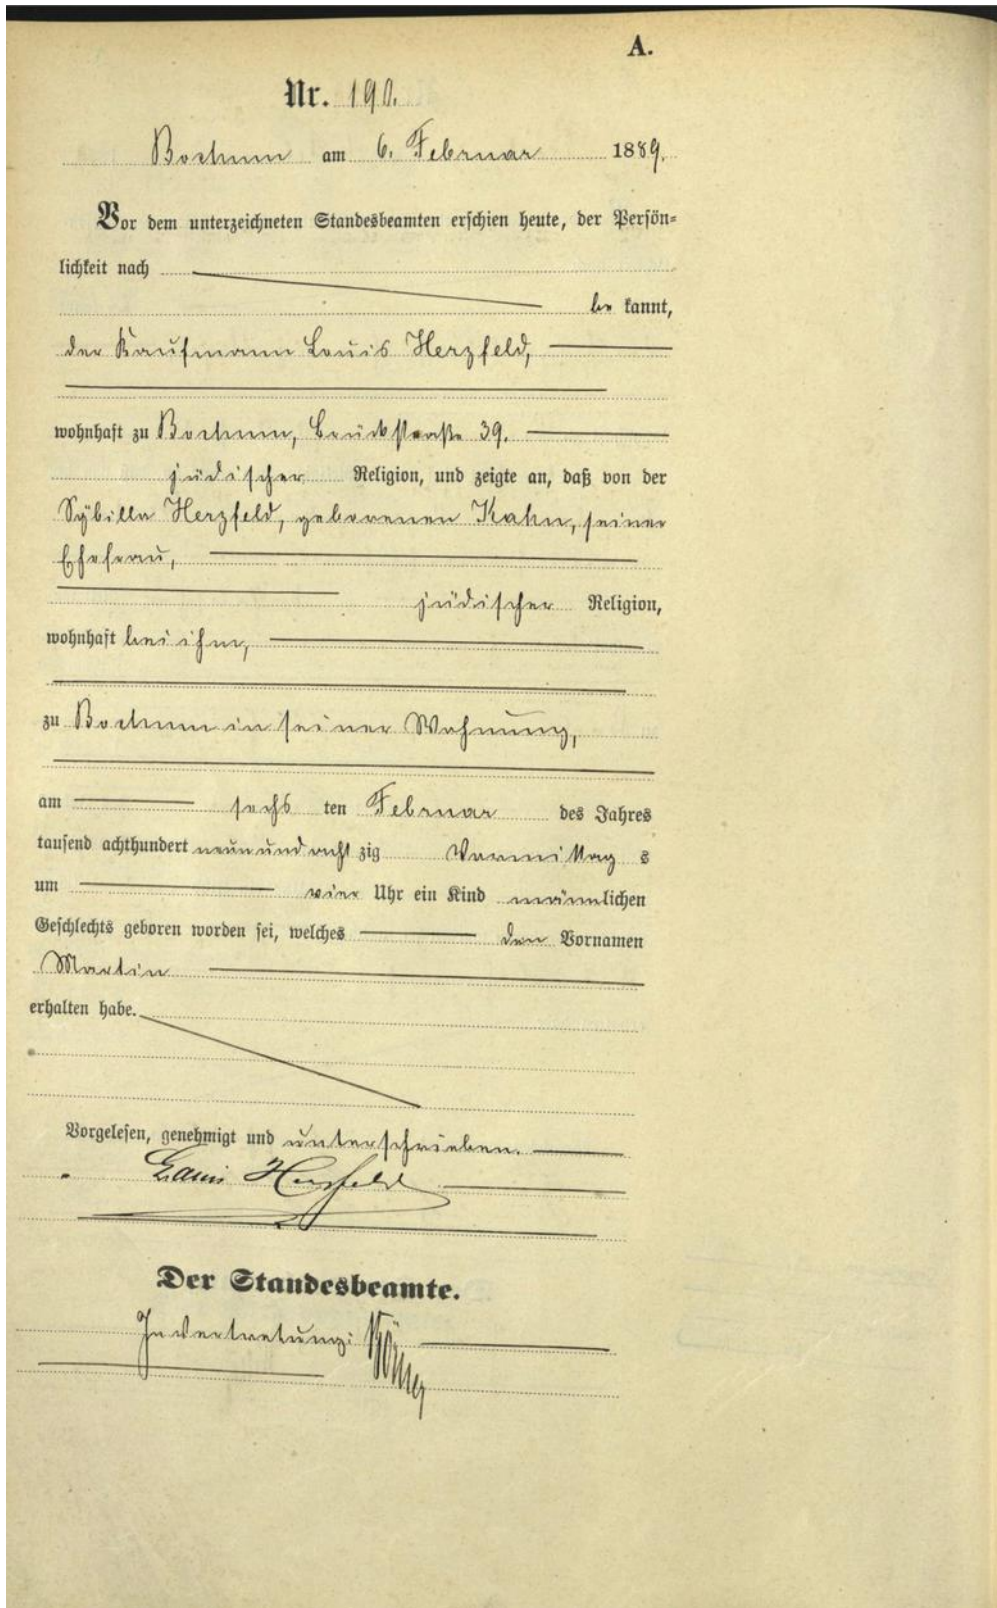 A.
Nr. 190.
Bochum am 6. Februar 1889.
Vor dem unterzeichneten Standesbeamten erschien heute, der Persön-
lichkeit nach
be kannt,
der Kaufmann Louis Herzfeld,
wohnhaft zu Bochum, Brückstraße 39.
jüdischer Religion, und zeigte an, daß von der
Sybilla Herzfeld, geborenen Kahn, seiner
Ehefrau,
jüdischer Religion,
wohnhaft bei ihm,
zu Bochum in seiner Wohnung,
am sechs ten Februar des Jahres
tausend achthundert neun und acht zig Vormittag s
um vier Uhr ein Kind männlichen
Geschlechts geboren worden sei, welches den Vornamen
Martin
erhalten habe.
Vorgelesen, genehmigt und unterschrieben.
Louis Herzfeld
Der Standesbeamte.
In Vertretung: